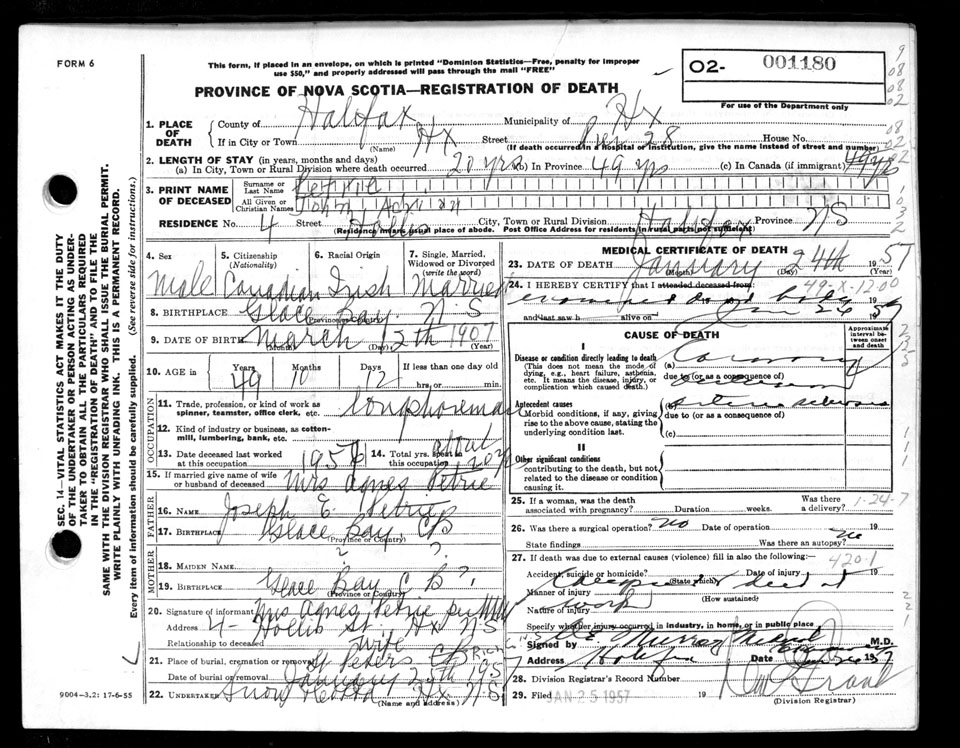 FORM 6
This form, if placed in an envelope, on which is printed "Dominion Statistics—Free, penalty for improper
use $50," and properly addressed will pass through the mail "FREE"
PROVINCE OF NOVA SCOTIA—REGISTRATION OF DEATH
O2- 001180
For use of the Department only
1. PLACE OF DEATH
County of Halifax Municipality of Hx
If in City or Town Hx Street Pier 28 House No.
(Name) (If death occurred in a hospital or institution, give the name instead of street and number)
2. LENGTH OF STAY (in years, months and days)
(a) In City, Town or Rural Division where death occurred 20 yrs (b) In Province 49 yrs (c) In Canada (if immigrant) 49 yrs
3. PRINT NAME OF DECEASED
Surname or Last Name Petrie
All Given or Christian Names John
RESIDENCE No. 4 Street Hollis City, Town or Rural Division Halifax Province NS
(Residence means usual place of abode. Post Office Address for residents in rural parts not sufficient)
4. Sex
Male
5. Citizenship (Nationality)
Canadian
6. Racial Origin
Irish
7. Single, Married, Widowed or Divorced (write the word)
Married
8. BIRTHPLACE Glace Bay N S
(Province or Country)
9. DATE OF BIRTH March 12th 1907
(Month) (Day) (Year)
10. AGE in Years 49 Months 10 Days 12 If less than one day old
hrs. or min.
OCCUPATION
11. Trade, profession, or kind of work as spinner, teamster, office clerk, etc. Longshoreman
12. Kind of industry or business, as cotton-mill, lumbering, bank, etc.
13. Date deceased last worked at this occupation 1956
14. Total yrs. spent in this occupation 20 yrs
15. If married give name of wife or husband of deceased Mrs Agnes Petrie
FATHER
16. NAME Joseph E. Petrie
17. BIRTHPLACE Glace Bay CB
(Province or Country)
MOTHER
18. MAIDEN NAME ? ?
19. BIRTHPLACE Glace Bay C B ?
(Province or Country)
20. Signature of informant Mrs Agnes Petrie
Address 4- Hollis St. Hx N S
Relationship to deceased wife
21. Place of burial, cremation or removal St Peters CB Rich
Date of burial or removal January 195
22. UNDERTAKER Snow Hx N S
(Name and address)
9004—3.2: 17-6-55
SEC. 14—VITAL STATISTICS ACT MAKES IT THE DUTY
OF THE UNDERTAKER OR PERSON ACTING AS UNDER-
TAKER TO OBTAIN ALL THE PARTICULARS REQUIRED
IN THE "REGISTRATION OF DEATH" AND TO FILE THE
SAME WITH THE DIVISION REGISTRAR WHO SHALL ISSUE THE BURIAL PERMIT.
WRITE PLAINLY WITH UNFADING INK. THIS IS A PERMANENT RECORD.
Every item of information should be carefully supplied. (See reverse side for instructions.)
MEDICAL CERTIFICATE OF DEATH
23. DATE OF DEATH January 24th 1957
(Month) (Day) (Year)
24. I HEREBY CERTIFY that I attended deceased from:
49-X-12-00
examined dead body
and last saw h alive on Jan 24 57
CAUSE OF DEATH
Approximate interval between onset and death
I
Disease or condition directly leading to death
(This does not mean the mode of dying, e.g., heart failure, asthenia, etc. It means the disease, injury, or complication which caused death.)
(a) Coronary
due to (or as a consequence of)
Antecedent causes
Morbid conditions, if any, giving rise to the above cause, stating the underlying condition last.
(b) Arterio sclerosis
due to (or as a consequence of)
(c)
II
Other significant conditions
contributing to the death, but not related to the disease or condition causing it.
25. If a woman, was the death associated with pregnancy? Duration weeks. Was there a delivery?
1-24-7
26. Was there a surgical operation? No Date of operation 19
State findings Was there an autopsy? No
27. If death was due to external causes (violence) fill in also the following:
420.1
Accident, suicide or homicide? (State which) Date of injury 19
Manner of injury (How sustained)
Nature of injury work
Specify whether injury occurred in industry, in home, or in public place
Signed by Murray M.D.
Address Halifax Date 1957
28. Division Registrar's Record Number
29. Filed JAN 25 1957 19
(Division Registrar)